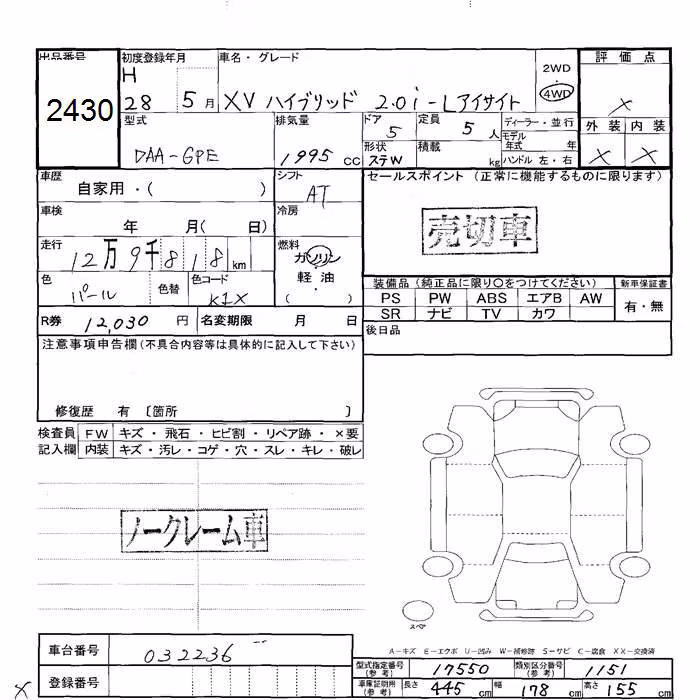 出品番号
2430
初度登録年月
H
28 5月
車名・グレード
XV ハイブリッド 2.0i-Lアイサイト
2WD
4WD
評価点
×
外装 内装
× ×
型式
DAA-GPE
排気量
1995 CC
ドア
5
形状
ステW
定員
5 人
積載
kg
ディーラー・並行
モデル年式 年
ハンドル 左・右
車歴
自家用・( )
シフト
AT
セールスポイント (正常に機能するものに限ります)
売切車
車検
年 月( 日)
冷房
走行
12万9千818km
燃料
ガソリン
軽油
( )
色
パール
色替
色コード
K1X
装備品 (純正品に限り○をつけてください)
PS PW ABS エアB AW
SR ナビ TV カワ
新車保証書
有・無
R券 12,030 円
名変期限 月 日
後日品
注意事項申告欄(不具合内容等は具体的に記入して下さい)
修復歴 有 〔箇所 〕
検査員記入欄
FW キズ・飛石・ヒビ割・リペア跡・×要
内装 キズ・汚レ・コゲ・穴・スレ・キレ・破レ
ノークレーム車
スペア
A-キズ E-エクボ U-凹み W-補修跡 S-サビ C-腐食 XX-交換済
車台番号 032236
登録番号
×
型式指定番号(参考) 17550 類別区分番号(参考) 1151
車庫証明用(参考) 長さ 445 cm 幅 178 cm 高さ 155 cm